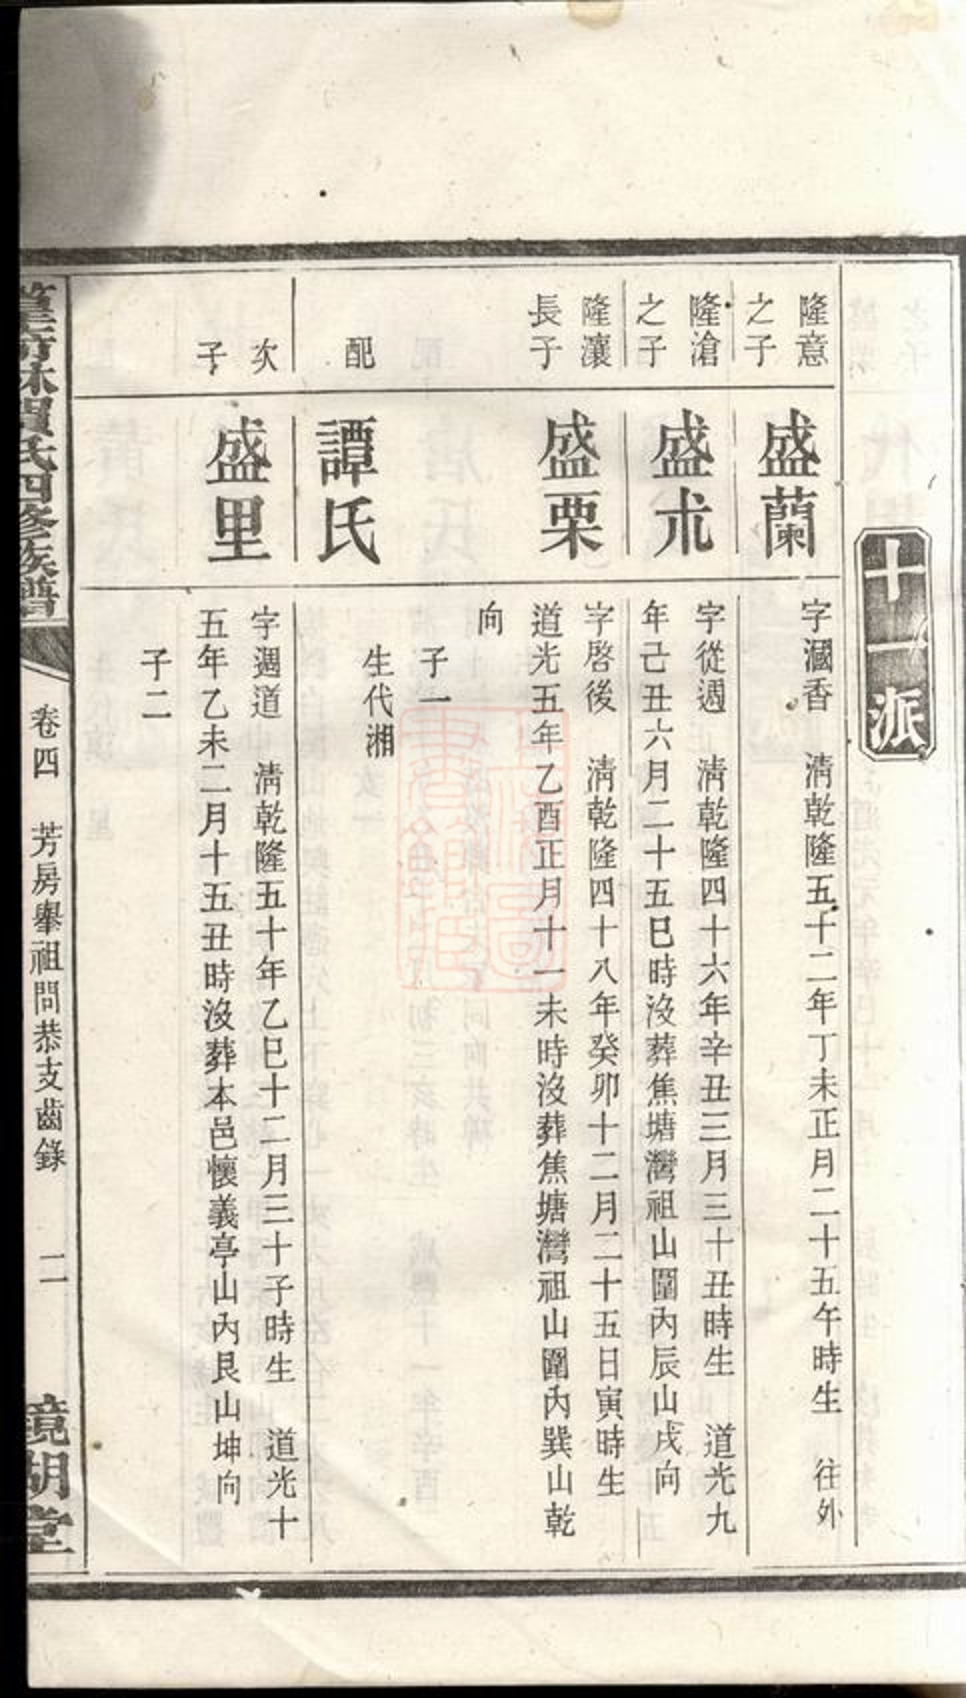 十一派
隆意
之子
盛蘭
字漍香 淸乾隆五十二年丁未正月二十五午時生 往外
隆滄
之子
盛朮
字從週 淸乾隆四十六年辛丑三月三十丑時生 道光九
年己丑六月二十五巳時沒葬焦塘灣祖山圍內辰山戌向
隆瀼
長子
盛栗
字啓後 淸乾隆四十八年癸卯十二月二十五日寅時生
道光五年乙酉正月十一未時沒葬焦塘灣祖山圍內巽山乾
向
子一
生代湘
配
譚氏
次
子
盛里
字週道 淸乾隆五十年乙巳十二月三十子時生 道光十
五年乙未二月十五丑時沒葬本邑懷義亭山內艮山坤向
子二
賀氏四修族譜
卷四 芳房舉祖問恭支齒錄 二
鏡湖堂